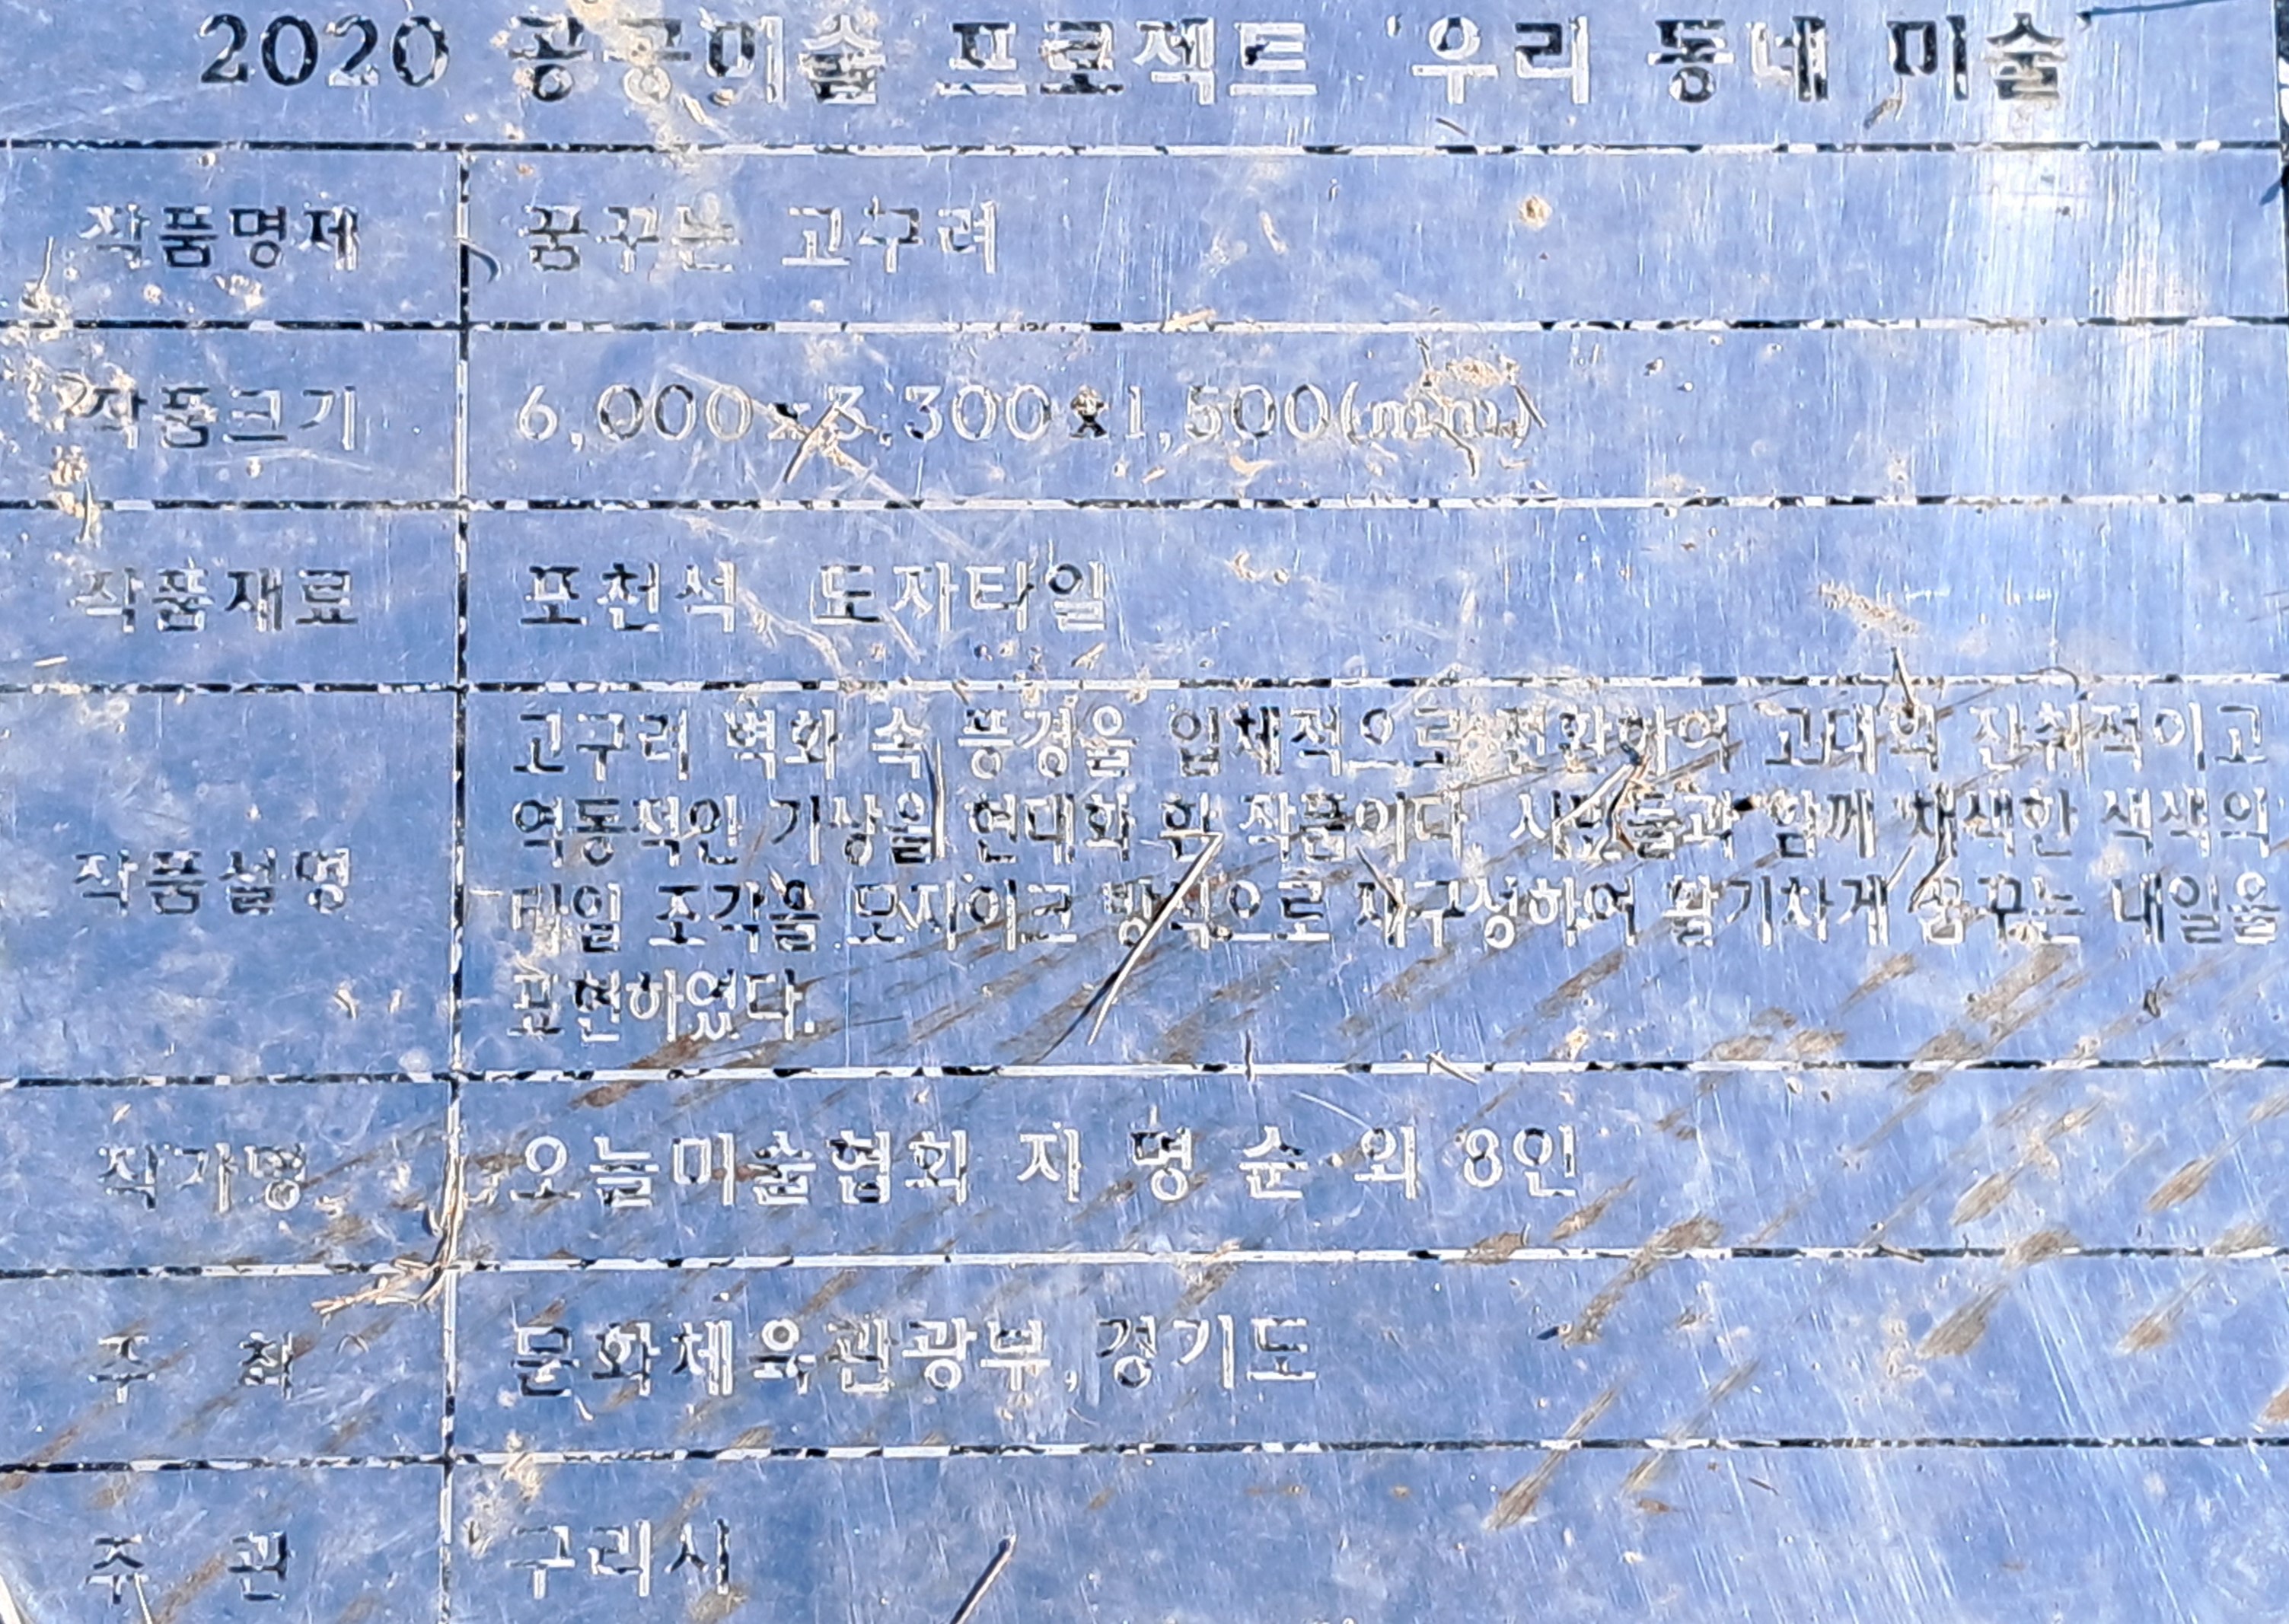 2020 공공미술 프로젝트 '우리 동네 미술'
작품명제 꿈꾸는 고구려
작품크기 6,000x3,300x1,500(mm)
작품재료 포천석 도자타일
작품설명 고구려 벽화 속 풍경을 입체적으로 전환하여 고대의 진취적이고
역동적인 기상을 현대화 한 작품이다 시민들과 함께 채색한 색색의
타일 조각을 모자이크 방식으로 재구성하여 활기차게 꿈꾸는 내일을
표현하였다.
작가명 오늘미술협회 지 명 순 외 8인
주 최 문화체육관광부, 경기도
주 관 구리시